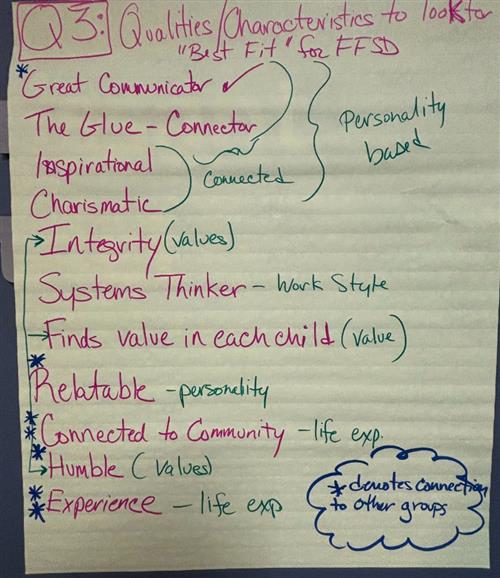 Q3: Qualities/Characteristics to look for
"Best Fit" for FFSD
* Great Communicator ✓
The Glue - Connector
Inspirational
Charismatic
Connected
Personality
based
Integrity (values)
Systems Thinker - Work Style
Finds value in each child (value)
* Relatable - personality
** Connected to Community - life exp.
* Humble (values)
** Experience - life exp
* denotes connection
to other groups